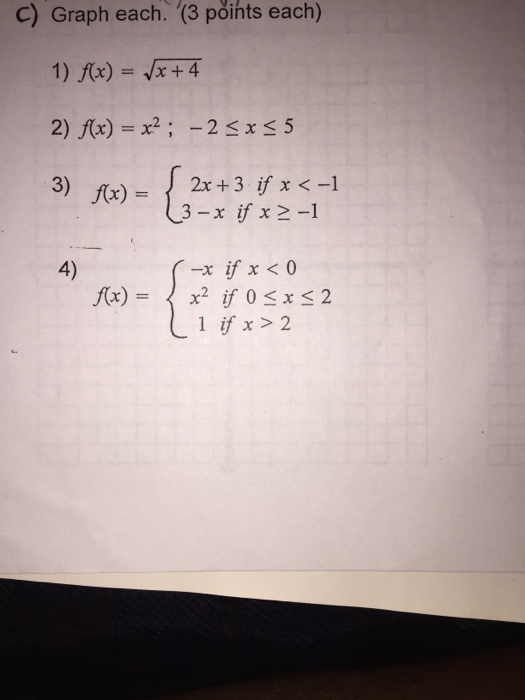 C) Graph each. (3 points each)
1) f(x) = √x + 4
2) f(x) = x² ; −2 ≤ x ≤ 5
3) f(x) = { 2x + 3 if x < −1
3 − x if x ≥ −1
4) f(x) = { −x if x < 0
x² if 0 ≤ x ≤ 2
1 if x > 2